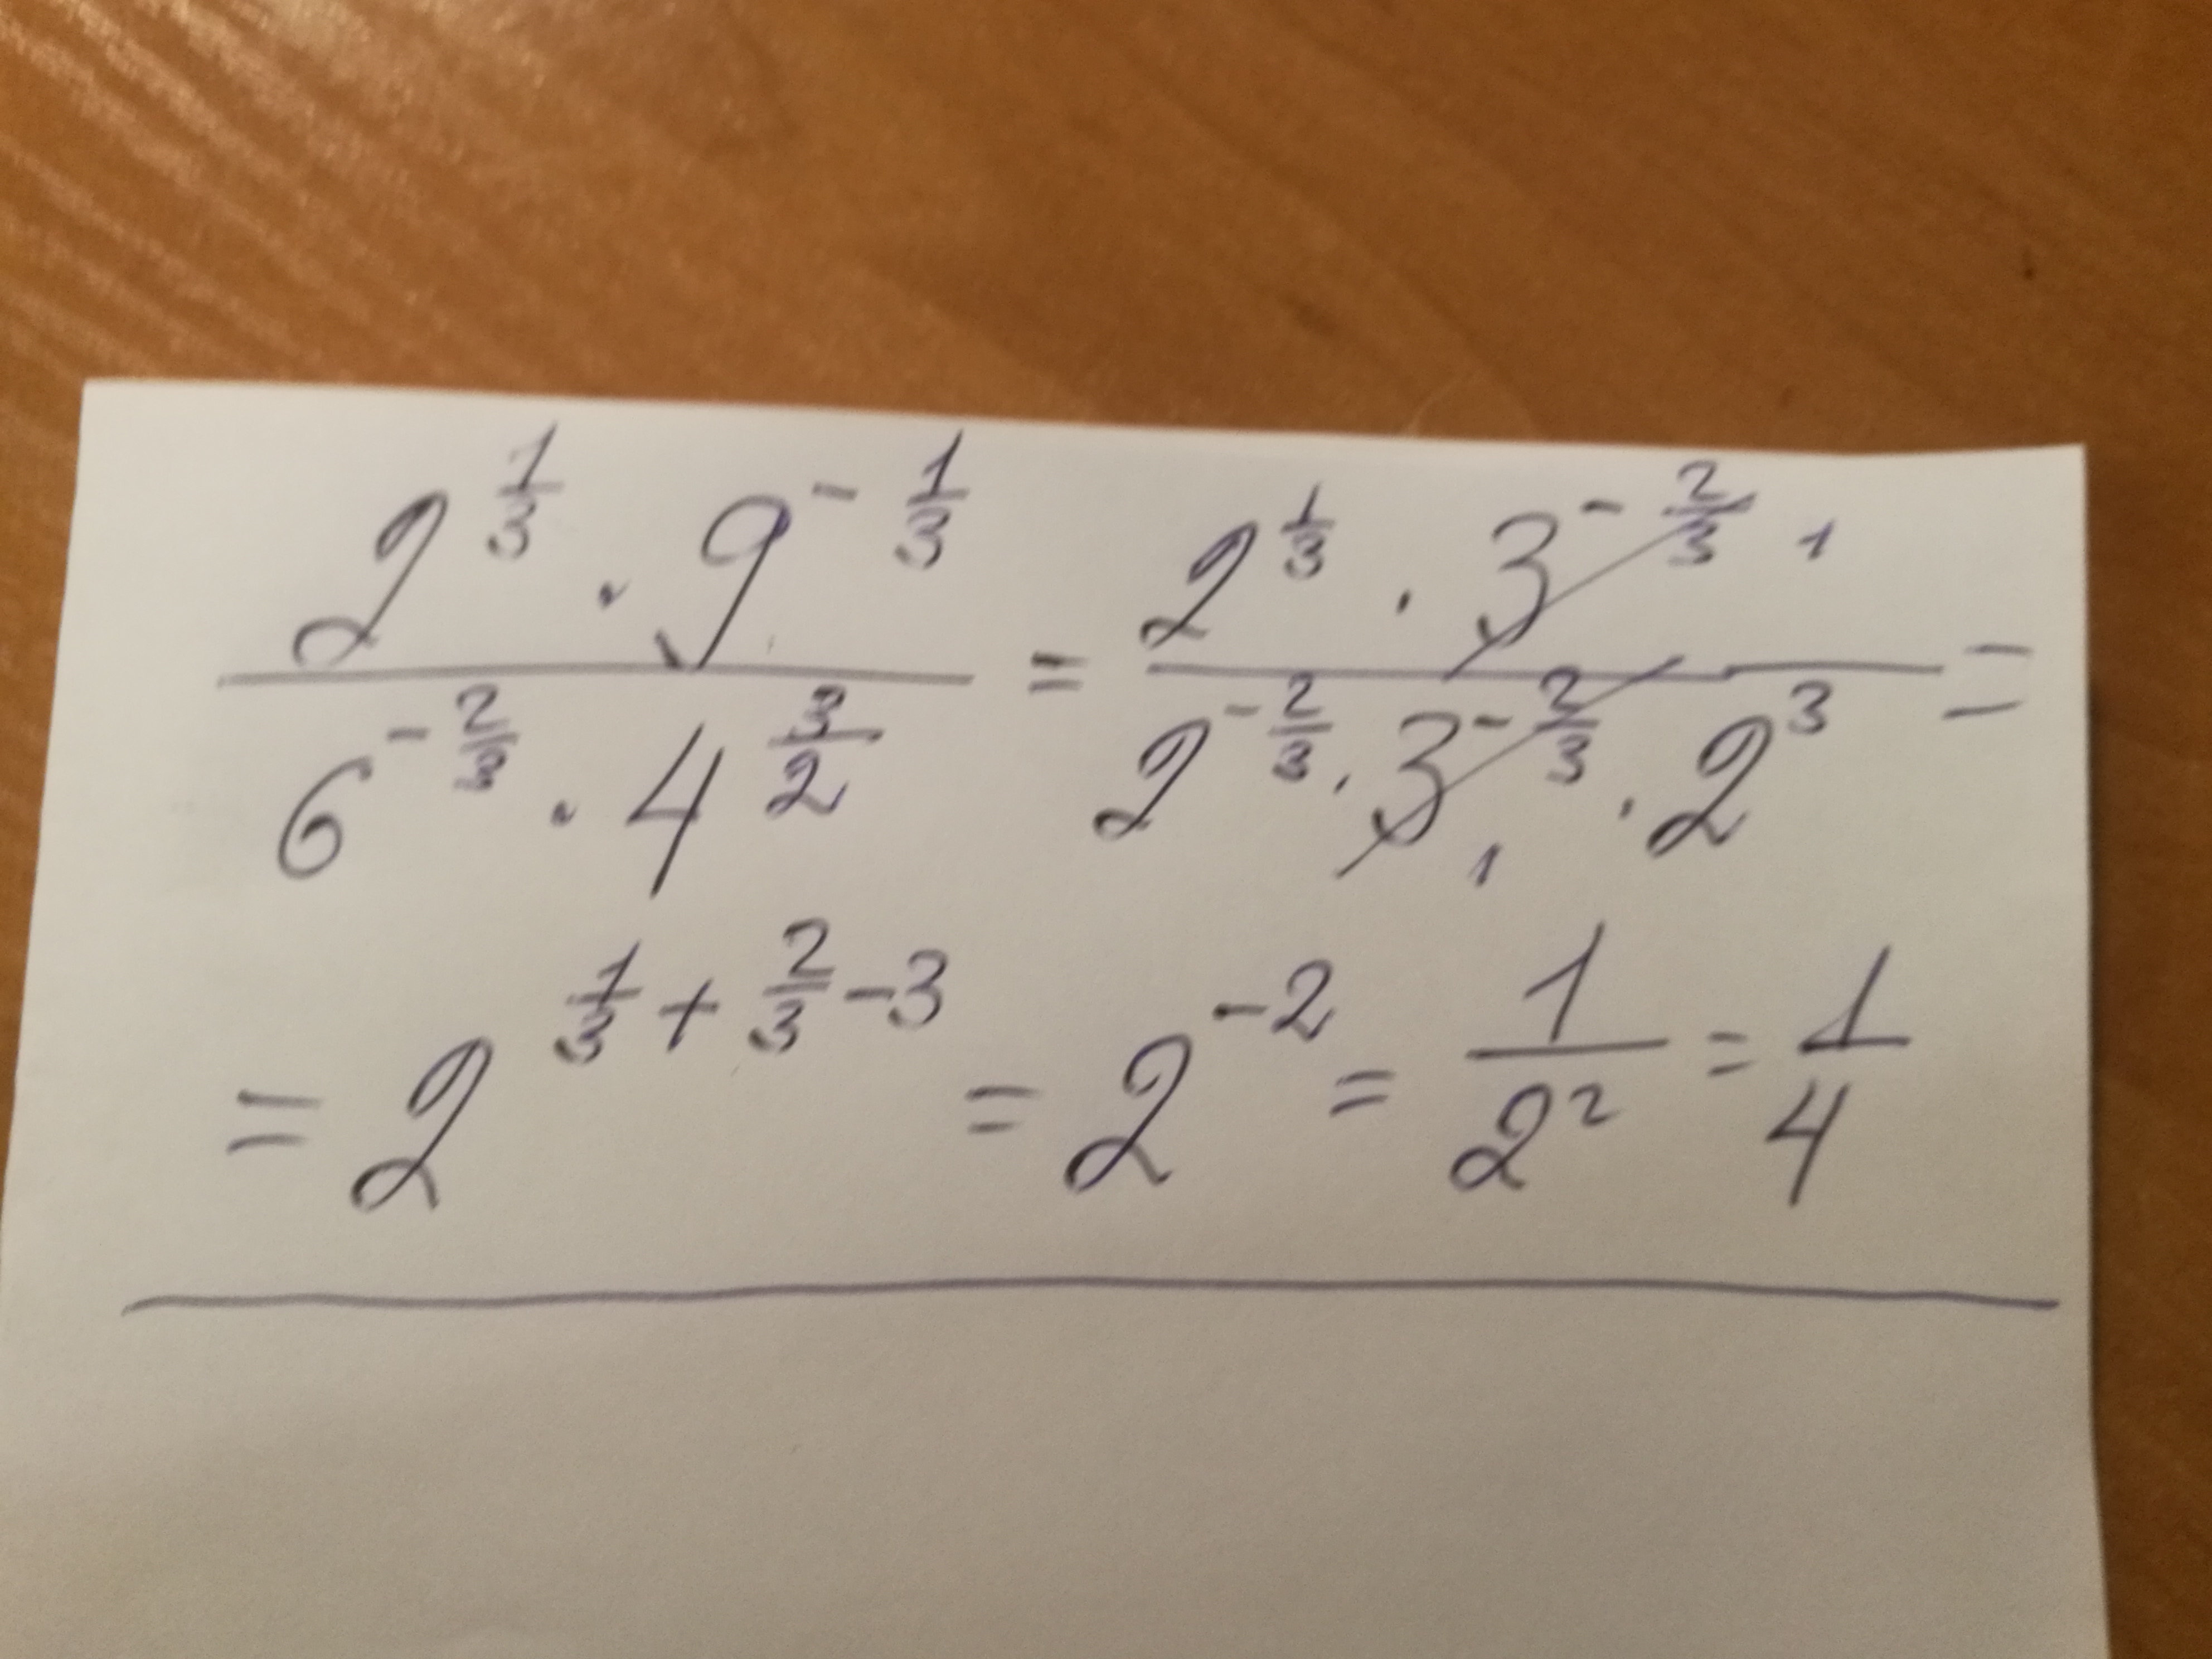 \frac{2^{\frac{1}{3}} \cdot 9^{-\frac{1}{3}}}{6^{-\frac{2}{3}} \cdot 4^{\frac{3}{2}}} = \frac{2^{\frac{1}{3}} \cdot \cancel{3^{-\frac{2}{3}}} 1}{2^{-\frac{2}{3}} \cdot \cancel{3^{-\frac{2}{3}}} 1 \cdot 2^{3}} =
= 2^{\frac{1}{3} + \frac{2}{3} - 3} = 2^{-2} = \frac{1}{2^{2}} = \frac{1}{4}